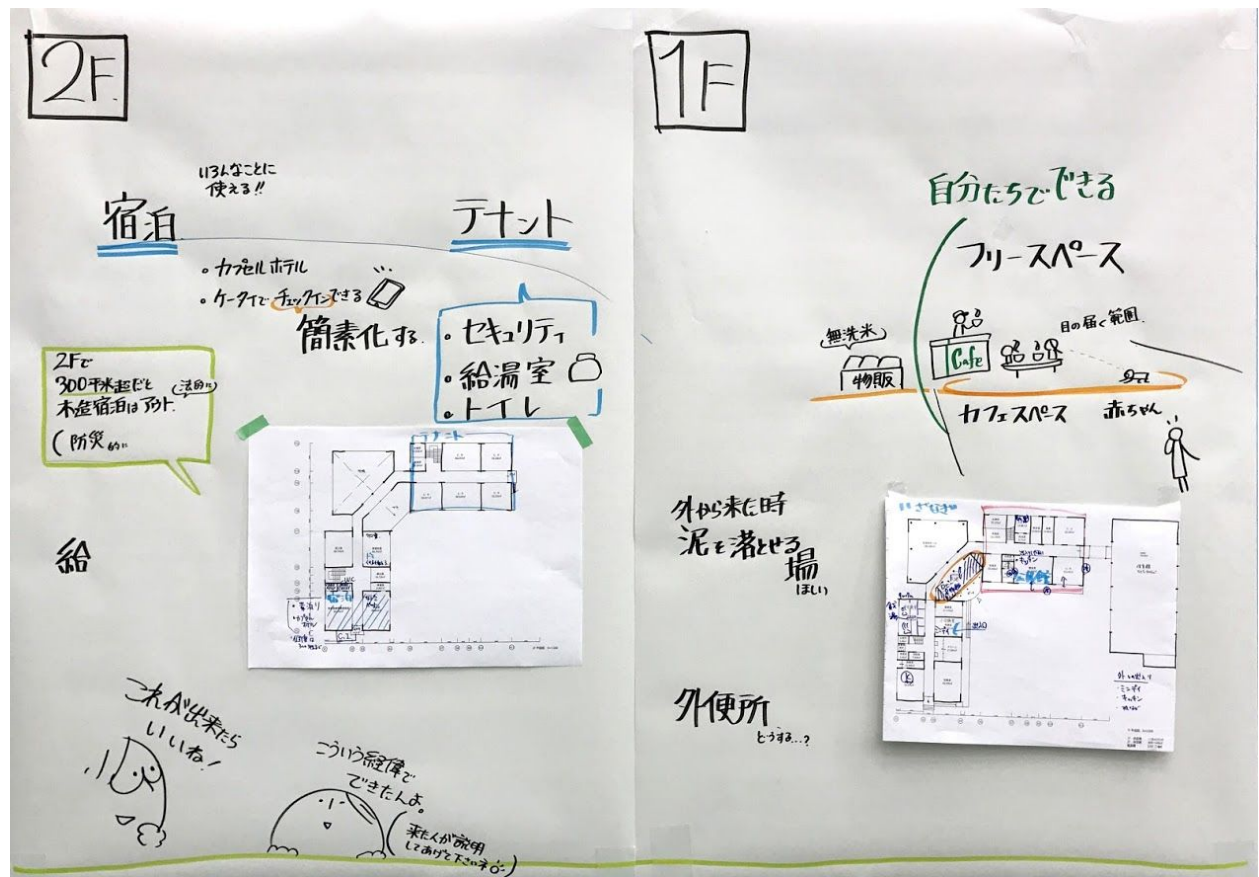 2F.
いろんなことに
使える!!
宿泊
テナント
・カプセルホテル
・ケータイでチェックインできる
簡素化する.
・セキュリティ
・給湯室
・トイレ
2Fで
300平米超だと
(法的に)
木造宿泊はアウト.
(防災的に
テナント
給
これが出来たら
いいね!
こういう経偉で
できたんよ。
(来た人が説明
してあげて下さいネ)
1F
自分たちでできる
フリースペース
無洗米
物販
Cafe
目の届く範囲
カフェスペース
赤ちゃん
外から来た時
泥を落とせる
場
ほしい
外便所
どうする…?